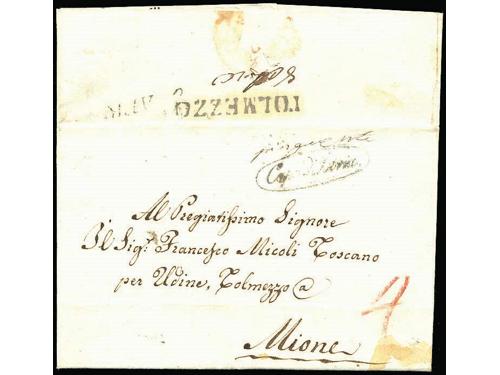 TOLMEZZO
Capo d'Istria
Al Pregiatissimo Signore
Il Sigr. Francesco Micoli Toscano
per Udine, Tolmezzo a
Mione
4